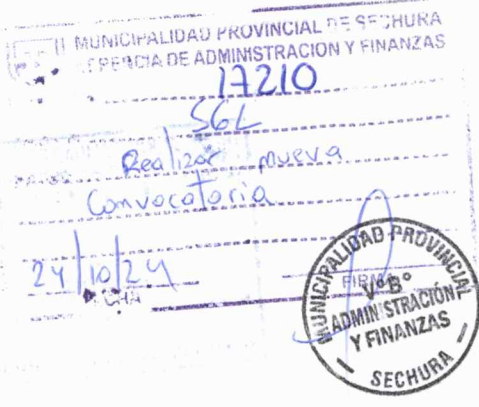 MUNICIPALIDAD PROVINCIAL DE SECHURA
GERENCIA DE ADMINISTRACION Y FINANZAS
17210
SGL
Realizar nueva
Convocatoria
24/10/24
FECHA
FIRMA
MUNICIPALIDAD PROVINCIAL
VºBº
ADMINISTRACIÓN
Y FINANZAS
SECHURA